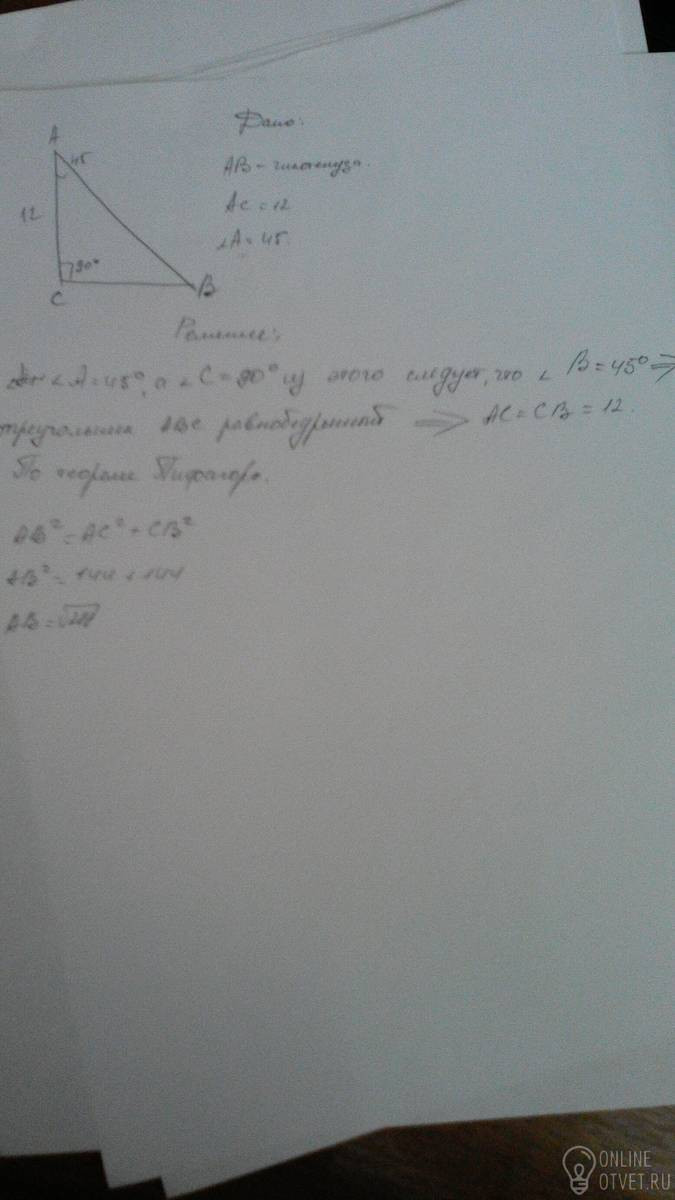 Дано:
A
45
AB - гипотенуза.
12
AC = 12
∠A = 45.
90°
C
B
Решение:
∠A = 45°, а ∠C = 90° из этого следует, что ∠B = 45° ⇒
треугольник ABC равнобедренный ⇒ AC = CB = 12.
По теореме Пифагора.
AB² = AC² + CB²
AB² = 144 + 144
AB = √288
ONLINE
OTVET.RU